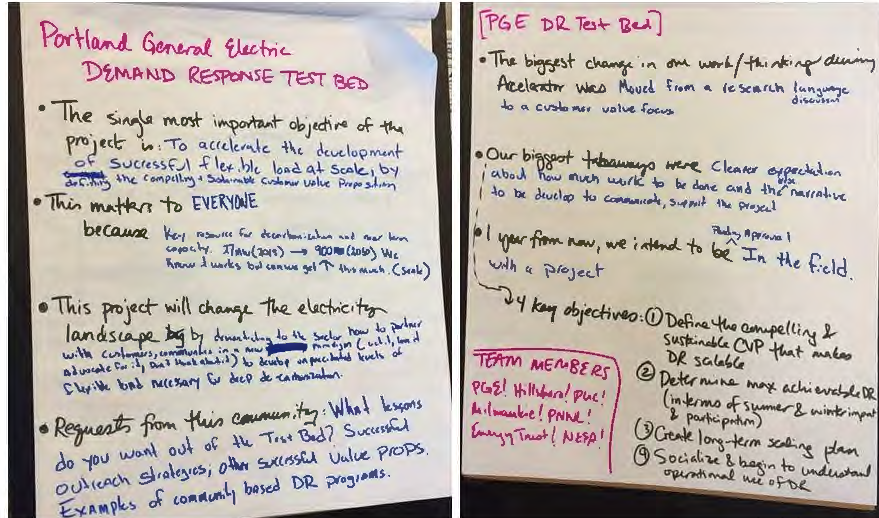 Portland General Electric
DEMAND RESPONSE TEST BED
• The single most important objective of the
project is: To accelerate the development
of successful flexible load at scale, by
defining the compelling + sustainable customer value proposition
• This matters to EVERYONE
because Key resource for decarbonization and near term
capacity. (2019) → (2050) We
know it works but can we get ↑ this much. (scale)
• This project will change the electricity
landscape by demonstrating to the sector how to partner
with customers, communities in a new paradigm (use it, load
advocate for it, don't think about it) to develop unprecedented levels of
flexible load necessary for deep de-carbonization.
• Requests from this community: What lessons
do you want out of the Test Bed? Successful
outreach strategies, other successful value props.
Examples of community based DR programs.
[PGE DR Test Bed]
• The biggest change in our work/thinking during
Acelerator was Moved from a research language
discussion
to a customer value focus
• Our biggest takeaways were Clearer expectation
about how much work to be done and the narrative
to be develop to communicate, support the project
• 1 year from now, we intend to be Pending Approval In the field.
with a project
→ 4 key objectives: ① Define the compelling &
sustainable CVP that makes
DR scalable
② Determine max achievable DR
(in terms of summer & winter impact
& participation)
③ Create long-term scaling plan
④ Socialize & begin to understand
operational use of DR
TEAM MEMBERS
PGE! Hillsboro! PUC!
Milwaukie! PNNL!
Energy Trust! NEEA!